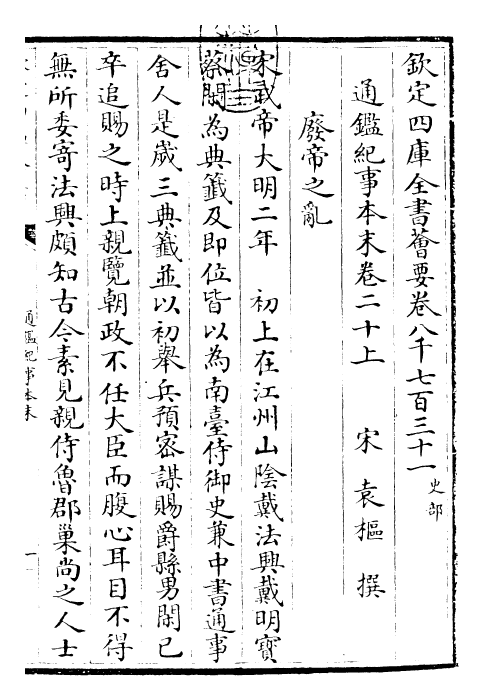 欽定四庫全書薈要卷八千七百三十一 史部
通鑑紀事本末卷二十上 宋 袁樞 撰
廢帝之亂
宋武帝大明二年 初上在江州山陰戴法興戴明寶
蔡閑為典籖及即位皆以為南臺侍御史兼中書通事
舍人是歲三典籖並以初舉兵預密謀賜爵縣男閑已
卒追賜之時上親覽朝政不任大臣而腹心耳目不得
無所委寄法興頗知古今素見親侍魯郡巢尚之人士
通鑑紀事本末 一